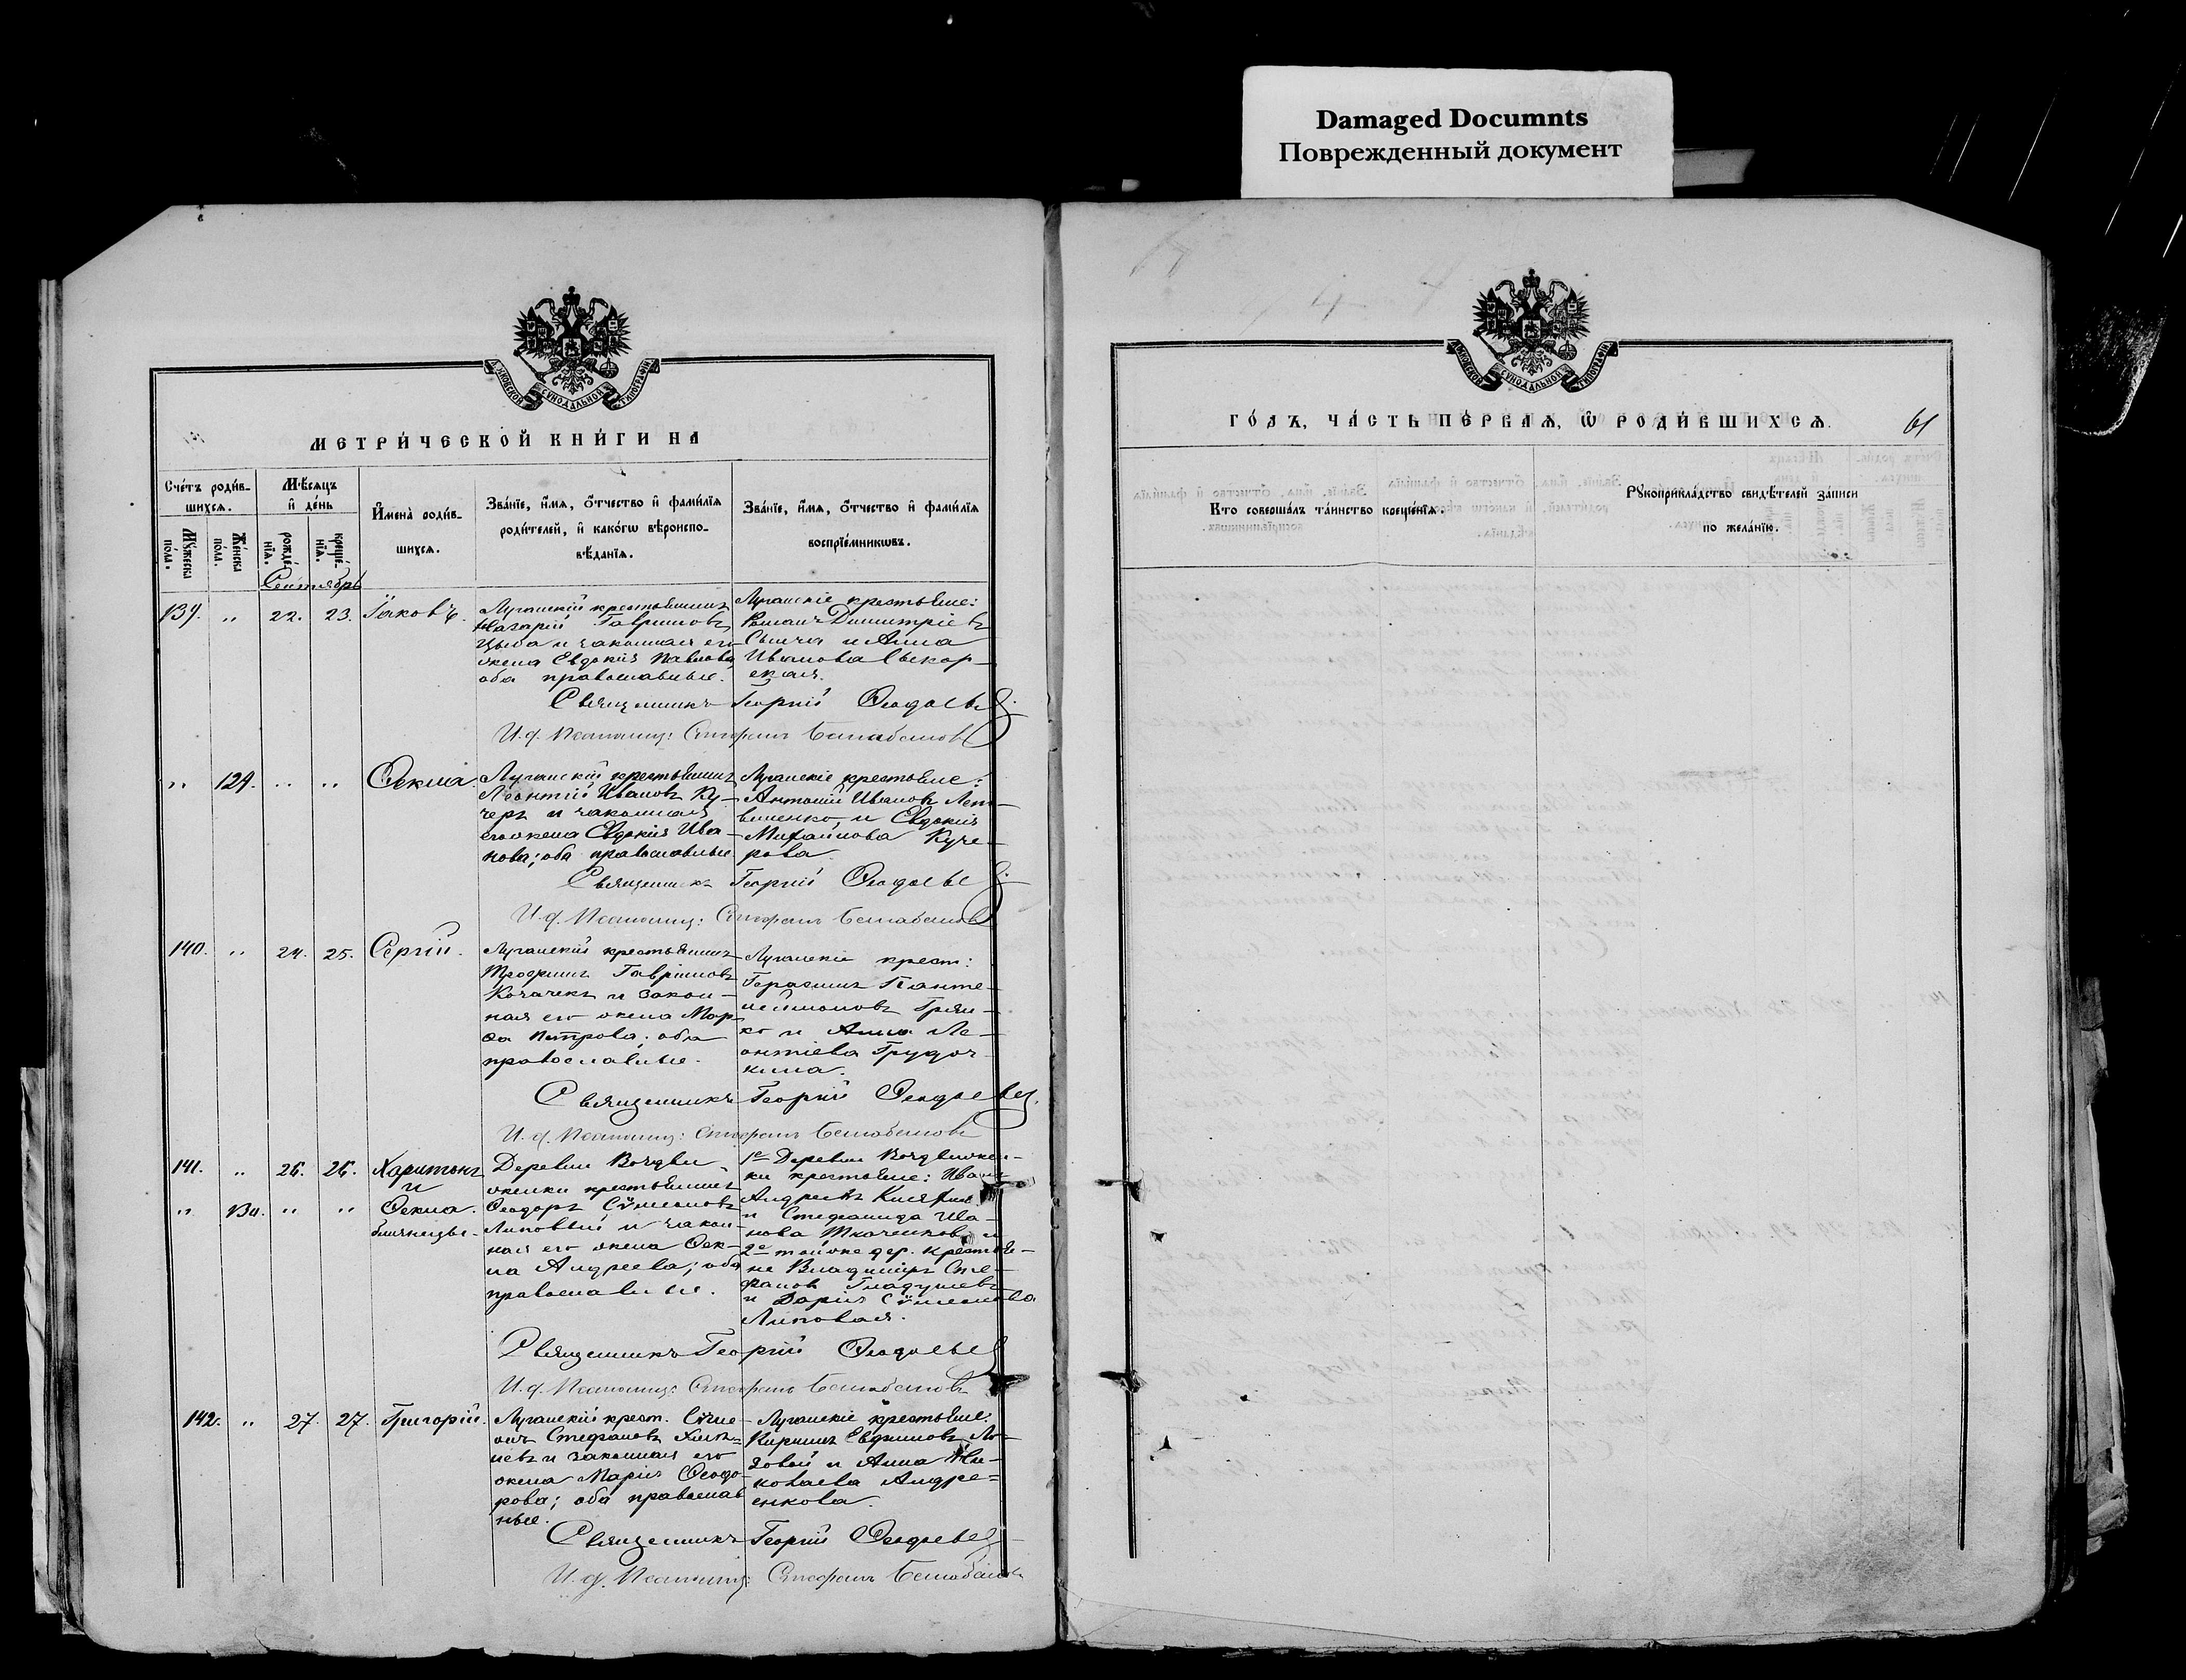 Damaged Documnts
Поврежденный документ
МОСКОВСКОЙ СѴНОДАЛЬНОЙ ТИПОГРАФІИ
МЕТРИ́ЧЕСКОЙ КНИ́ГИ НА
Сче́тъ роди́вшихсѧ.
Мꙋ́жеска по́ла.
Же́нска по́ла.
Мѣ́сѧцъ и҆ де́нь
рожде́нїѧ.
креще́нїѧ.
И҆мена̀ роди́вшихсѧ.
Зва́нїе, и҆́мѧ, ѻ҆́тчество и҆ фами́лїѧ роди́телей, и҆ како́гѡ вѣроисповѣ́данїѧ.
Зва́нїе, и҆́мѧ, ѻ҆́тчество и҆ фами́лїѧ воспрїе́мникѡвъ.
Сентябрь
139. " 22. 23. Іаковъ.
Луганскій крестьянинъ
Назарій Гавриловъ
Цыба и законная его
жена Евдокія Павлова,
оба православные.
Луганскіе крестьяне:
Романъ Димитріевъ
и Анна
Иванова Сикор-
ская.
Священникъ Георгій
И. д. Псаломщ: Стефанъ
" 129. " " Ѳекла.
Луганскій крестьянинъ
Леонтій Ивановъ Ку-
черъ и законная
его жена Евдокія Ива-
нова; оба православные.
Луганскіе крестьяне:
Антоній Ивановъ Лит-
виненко, и Евдокія
Михайлова Куче-
рова.
Священникъ Георгій
И. д. Псаломщ: Стефанъ
140. " 24. 25. Сергій.
Луганскій крестьянинъ
Трофимъ Гавріиловъ
Козачекъ и закон-
ная его жена Мар-
ѳа Петрова; оба
православные.
Луганскіе крест:
Герасимъ Панте-
леймоновъ
и Анна Ле-
онтіева
Священникъ Георгій
И. д. Псаломщ: Стефанъ
141. " 26. 26. Харитонъ
и
" 130. " " Ѳекла.
близнецы.
Деревни Воздви-
женки крестьянинъ
Ѳеодоръ Сѵмеоновъ
Липовый и закон-
ная его жена Ѳек-
ла Андреева; оба
православные.
1е Деревни Воздвижен-
ки крестьяне: Иванъ
Андреевъ
и Стефанида Ива-
нова Ткаченкова и
2е той же дер. крестья-
не Владиміръ Сте-
фановъ Гладушевъ
и Дарія Сѵмеонова
Липовая.
Священникъ Георгій
И. д. Псаломщ: Стефанъ
142. " 27. 27. Григорій.
Луганскій крест. Сѵме-
онъ Стефановъ
и законная его
жена Марія Ѳеодо-
рова; оба православ
ные.
Луганскіе крестьяне:
Кириллъ Евфимовъ Ло-
зовой и Анна Ни-
колаева Андре-
енкова.
Священникъ Георгій
И. д. Псаломщ: Стефанъ
МОСКОВСКОЙ СѴНОДАЛЬНОЙ ТИПОГРАФІИ
ГО́ДЪ, ЧА́СТЬ ПЕ́РВАѦ, Ѡ҆ РОДИ́ВШИХСѦ.
61
Кто̀ соверша́лъ та́инство креще́нїѧ.
Рꙋкоприкла́дство свидѣ́телей за́писи по жела́нїю.